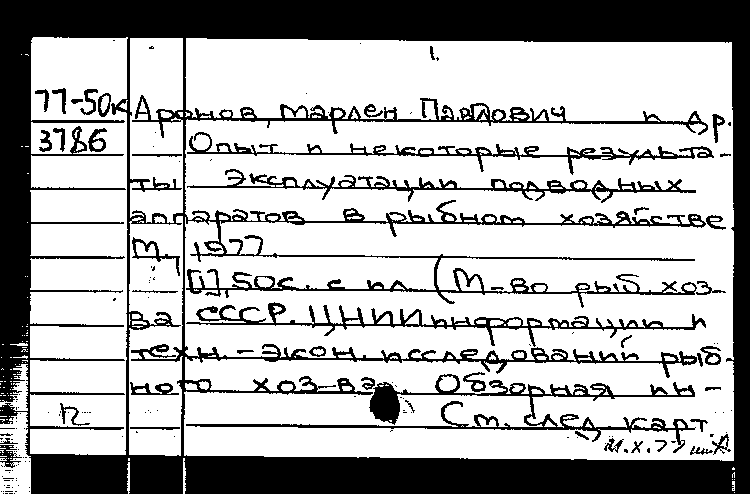 1.
77-50к Аронов, Марлен Павлович и др.
3786 Опыт и некоторые результа-
ты эксплуатации подводных
аппаратов в рыбном хозяйстве.
М., 1977.
[1], 50с. с ил. (М-во рыб. хоз-
ва СССР. ЦНИИ информации и
техн.-экон. исследований рыб-
ного хоз-ва. Обзорная ин-
См. след. карт.